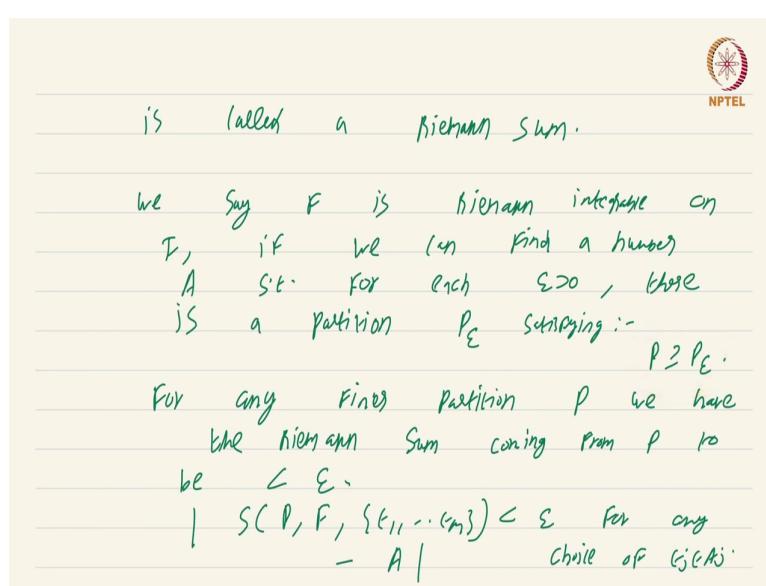 NPTEL
is called a Riemann sum.
We say F is Riemann integrable on
I, if we can find a number
A s.t. for each ε>0, there
is a partition P_ε satisfying :-
P ⊇ P_ε.
For any finer partition P we have
the Riemann sum coming from P to
be < ε.
| S(P, F, {t_1, .. t_n}) < ε for any
- A | choice of t_j ∈ A_j.